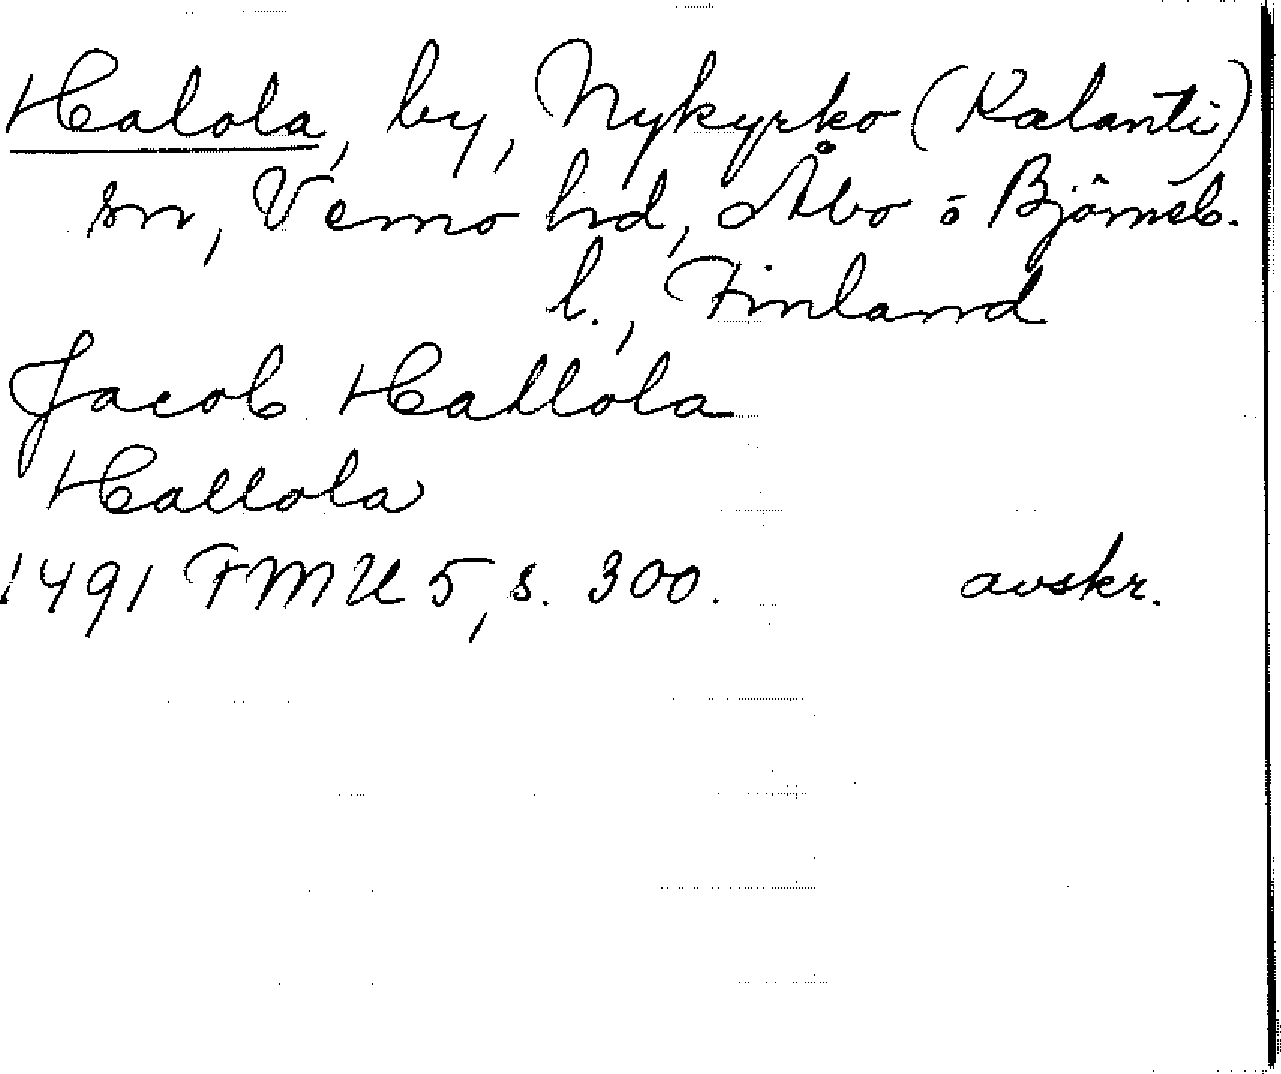 Halola, by, Nykyrko (Kalanti)
sn, Vemo hd, Åbo ō Björneb.
l., Finland
Jacob Hallola
Hallola
1491 FMU 5, s. 300. avskr.